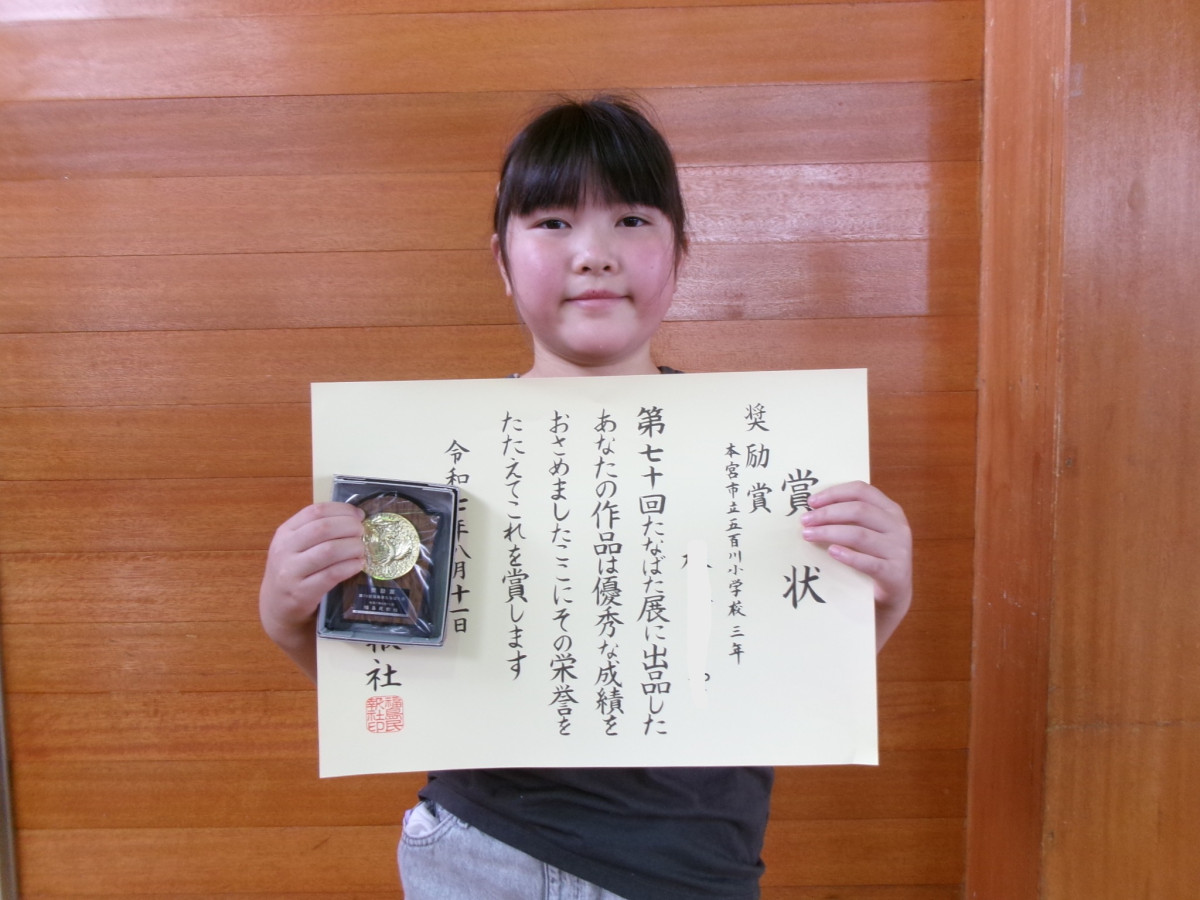 賞状
奨励賞
本宮市立五百川小学校三年
第七十回たなばた展に出品した
あなたの作品は優秀な成績を
おさめましたここにその栄誉を
たたえてこれを賞します
令和七年八月十一日
報社